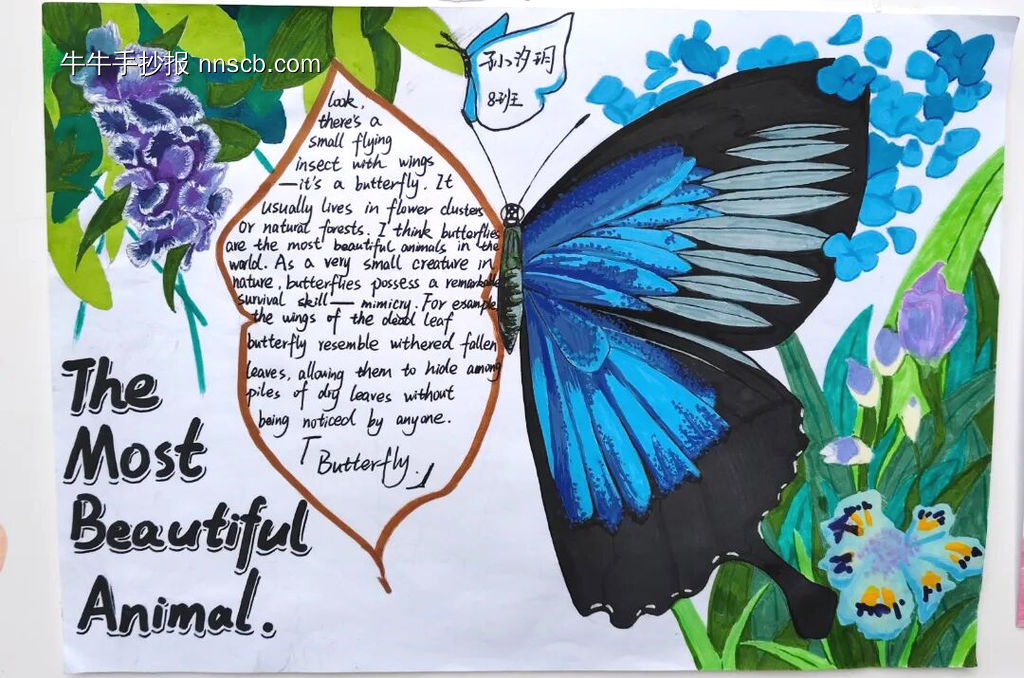 牛牛手抄报 nnscb.com
孙汐玥
8班
look,
there's a
small flying
insect with wings
—it's a butterfly. It
usually lives in flower clusters
or natural forests. I think butterflies
are the most beautiful animals in the
world. As a very small creature in
nature, butterflies possess a remarkable
survival skill — mimicry. For example
the wings of the dead leaf
butterfly resemble withered fallen
leaves, allowing them to hide among
piles of dry leaves without
being noticed by anyone.
「Butterfly.」
The
Most
Beautiful
Animal.